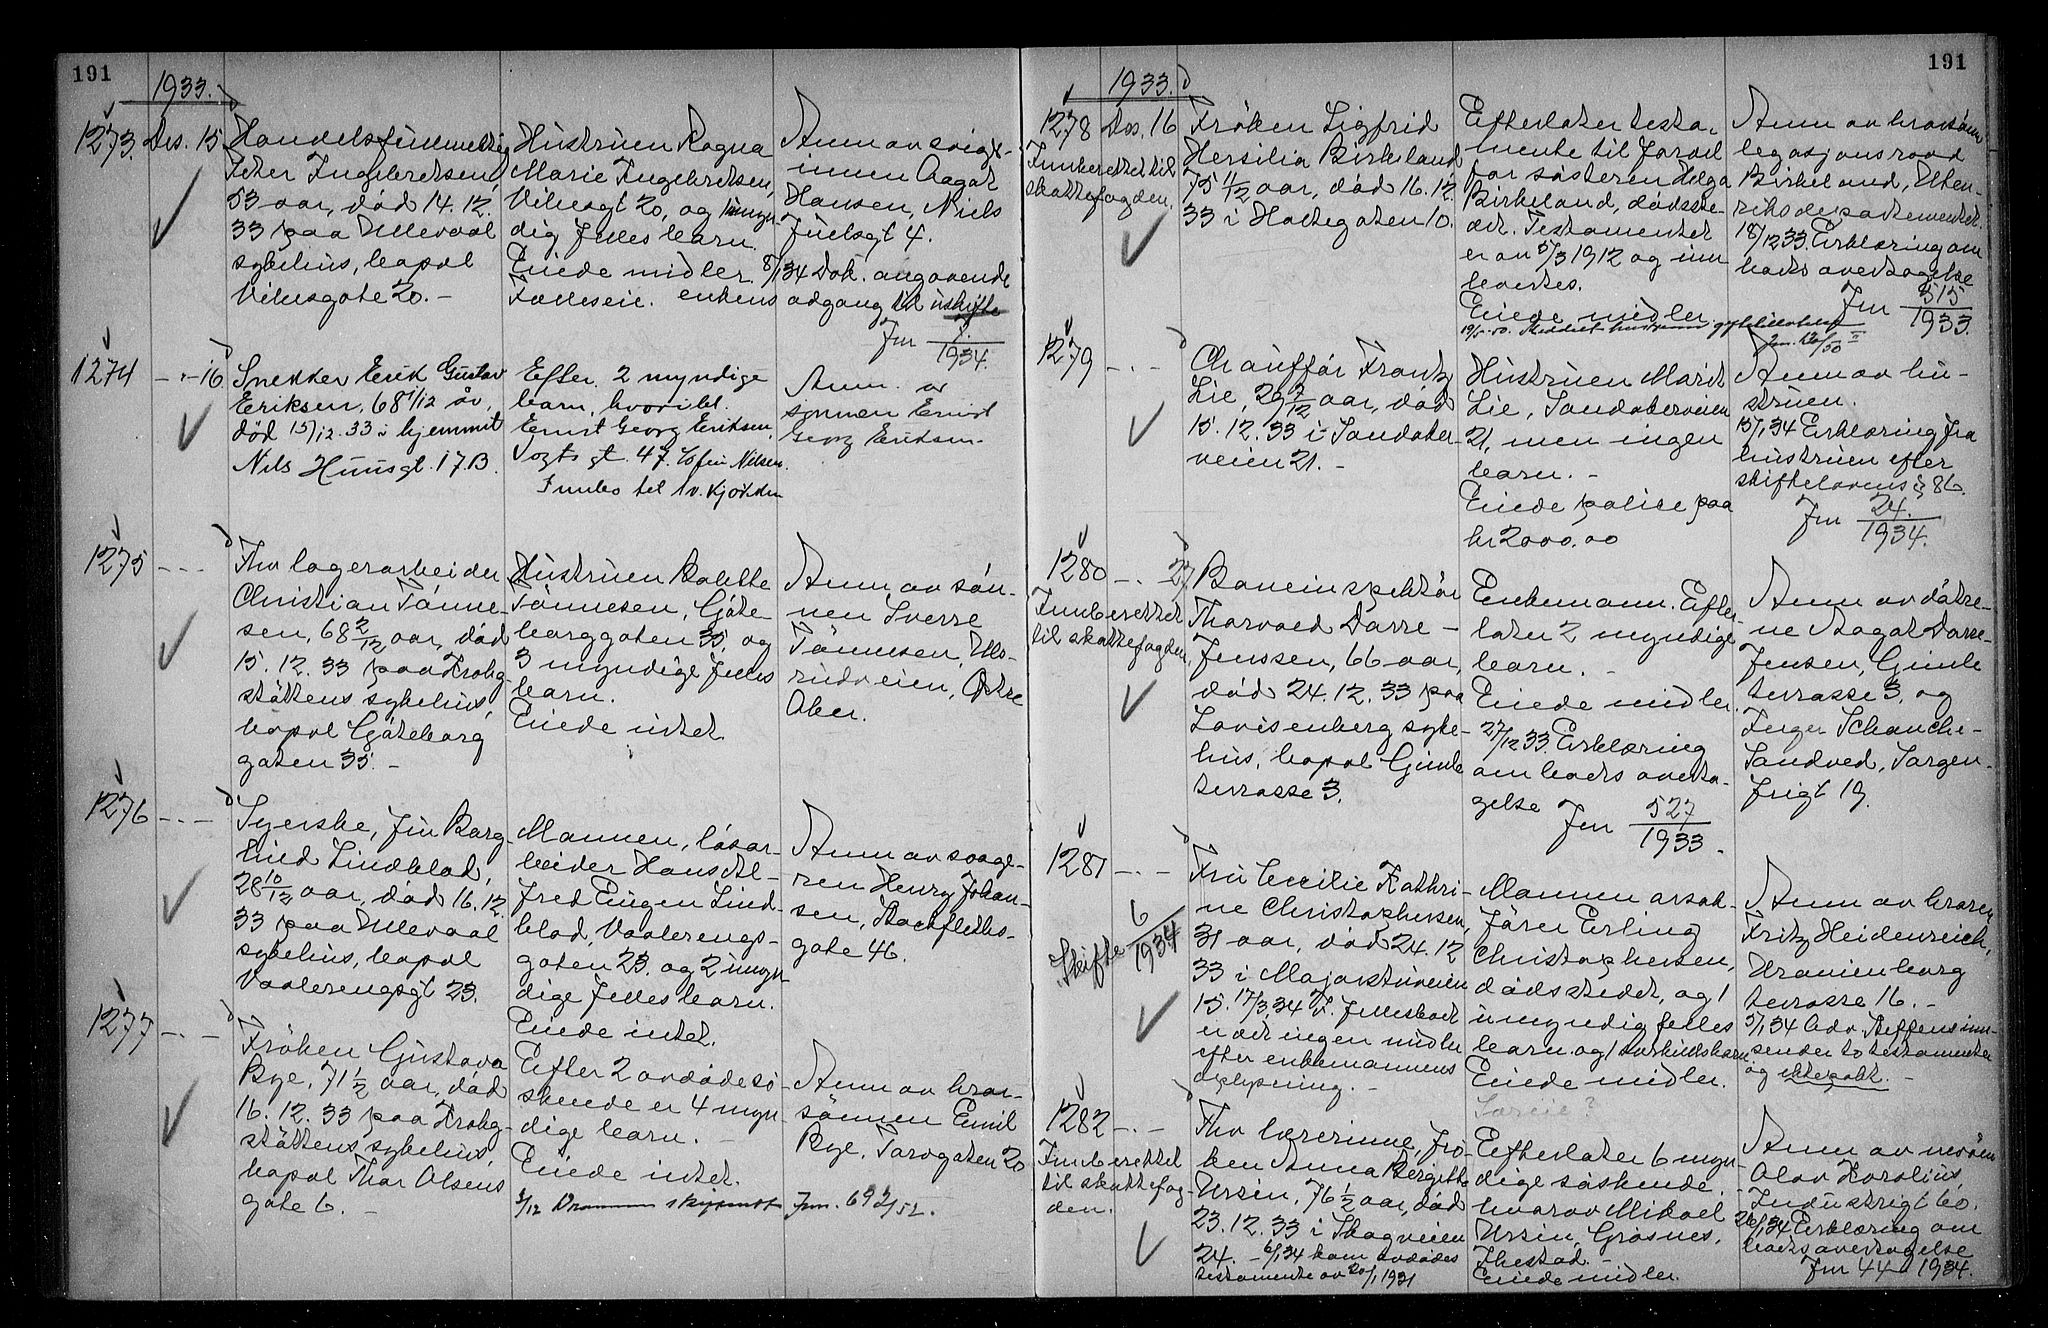 191
1933.
1273. Des. 15
Handelsfullmektig
Peter Ingebretsen,
53 aar, död 14.12.
33 paa Ullevaal
sykehus, bopæl
Vibesgate 20. –
Hustruen Ragna
Marie Ingebretsen,
Vibesgt 20, og 1 umyn-
dig fellesbarn.
Eiede midler.
Fælleseie.
Anm av sviger-
innen Aagot
Hansen, Niels
Juelsgt 4.
8/1 34 Dok. angaaende
enkens adgang til uskifte
Jnr 7./1934.
1274 – " – 16.
Snekker Erik Gustav
Eriksen, 68 1/12 år,
død 15/12.33 i hjemmet
Nils Huusgt. 17.B.
Efter. 2 myndige
barn, hvoribl.
Ernst Georg Eriksen,
Vogts gt. 47. c/o fru Nilsen.
Innbo til 1 v. kjökken
Anm. av
sønnen Ernst
Georg Eriksen.
1275 – – –
Fhv lagerarbeider
Christian Tönne-
sen, 68 2/12 aar, död
15.12.33 paa Krohg-
stöttens sykehus,
bopæl Göteborg
gaten 35. –
Hustruen Bolette
Tönnesen, Göte-
borggaten 35, og
3 myndige felles
barn.
Eiede intet.
Anm av sön-
nen Sverre
Tönnesen, Ulls-
rudveien, Östre
Aker.
1276 – – –
Syerske, fru Borg-
hild Lindblad,
28 10/12 aar, död 16.12.
33 paa Ullevaal
sykehus, bopæl
Vaalerengsgt 23.
Mannen, lösar-
beider Hans Al-
fred Eugen Lind-
blad, Vaalerengs-
gaten 23, og 2 umyn-
dige fellesbarn.
Eiede intet.
Anm av svoge-
ren Henry Johan-
sen, Stockfleths-
gate 46.
1277 – – –
Fröken Gustava
Bye, 71 1/2 aar, död
16.12.33 paa Krohg-
stöttens sykehus,
bopæl Thor Olsens
gate 6. –
Efter 2 avdöde sö-
skende er 4 myn-
dige barn. –
Eiede intet.
Anm av bror-
sönnen Emil
Bye, Torvgaten 20
Jnr. 692/52.
191
1933.
1278 Des. 16
Innberettet til
skattefogden.
Fröken Sigfrid
Hersilia Birkeland
75 11/12 aar, död 16.12.
33 i Holtegaten 10.
Efterlater testa-
mente til fordel
for sösteren Helga
Birkeland, dödsste-
det. Testamentet
er av 5/3 1912 og inn
leveres.
Eiede midler.
Anm av brorsönn
legasjonsraad
Birkeland, Uten-
riksdepartementet.
18/12 33. Erklæring om
boets overtagelse
Jnr 515/1933.
1279 – . –
Chaufför Frantz
Lie, 29 7/12 aar, död
15.12.33 i Sandaker-
veien 21. –
Hustruen Marit
Lie, Sandakerveien
21, men ingen
barn. –
Eiede polise paa
kr 2000.00
Anm av hu-
struen.
15/1 34 Erklæring fra
hustruen efter
skiftelovens § 86.
Jnr 24./1934.
1280 – . – 27
Innberettet
til skattefogden.
Baneinspektör
Thorvald Dorre-
Jenssen, 66 aar,
död 24.12.33 paa
Lovisenberg syke-
hus, bopæl Gimle
terrasse 3.
Enkemann. Efter-
later 2 myndige
barn. –
Eiede midler.
27/12 33. Erklæring
om boets overta-
gelse Jnr 527/1933.
Anm av dötre-
ne Aagot Dorre-
Jensen, Gimle
terrasse 3, og
Inger Schanche-
Sandved, Jörgen-
frigt 19.
1281 – . –
Skifte 6/1934
Fru Cecilie Kathri-
ne Christophersen,
31 aar, död 24.12
33 i Majorstuveien
15. 17/3.34 I fellesboet
er det ingen midler
efter enkemannens
oplysning. –
Mannen arsok-
förer Erling
Christophersen,
dödsstedet, og 1
umyndig felles
barn og 1 særkullsbarn
Eiede midler.
Særeie?
Anm av broren
Fritz Heidenreich,
Uranienborg
terrasse 16. –
5/1 34 Adv. Steffens inn-
sender to testamenter
og ektepakt. –
1282 – . –
Innberettet
til skattefog-
den.
Fhv lærerinne, frö-
ken Anna Bergitte
Ursin, 76 1/2 aar, död
23.12.33 i Skogveien
24. – 6/1 34 kom avdödes
testamente av 20/1 1921
Efterlater 6 myn-
dige söskende,
hvorav Mikael
Ursin, Grasnes,
Ibestad. –
Eiede midler.
Anm av nevöen
Olav Karolius,
Industrigt 60.
26/1 34 Erklæring om
boets overtagelse
Jnr 44 1934.